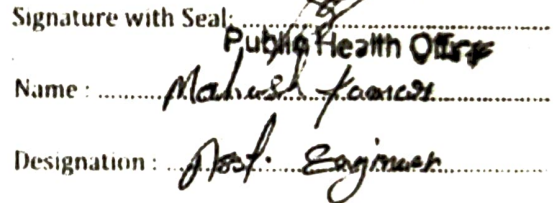 Signature with Seal:
Public Health Office
Name : Mahesh Kumar
Designation : Asst. Engineer